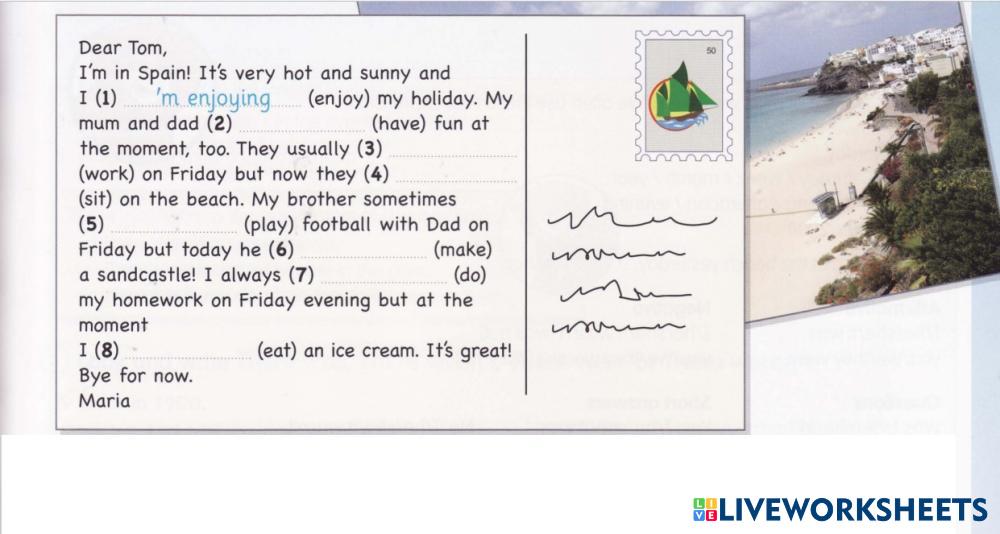 Dear Tom,
I'm in Spain! It's very hot and sunny and
I (1) 'm enjoying (enjoy) my holiday. My
mum and dad (2) (have) fun at
the moment, too. They usually (3)
(work) on Friday but now they (4)
(sit) on the beach. My brother sometimes
(5) (play) football with Dad on
Friday but today he (6) (make)
a sandcastle! I always (7) (do)
my homework on Friday evening but at the
moment
I (8) (eat) an ice cream. It's great!
Bye for now.
Maria
50
LIVE LIVEWORKSHEETS